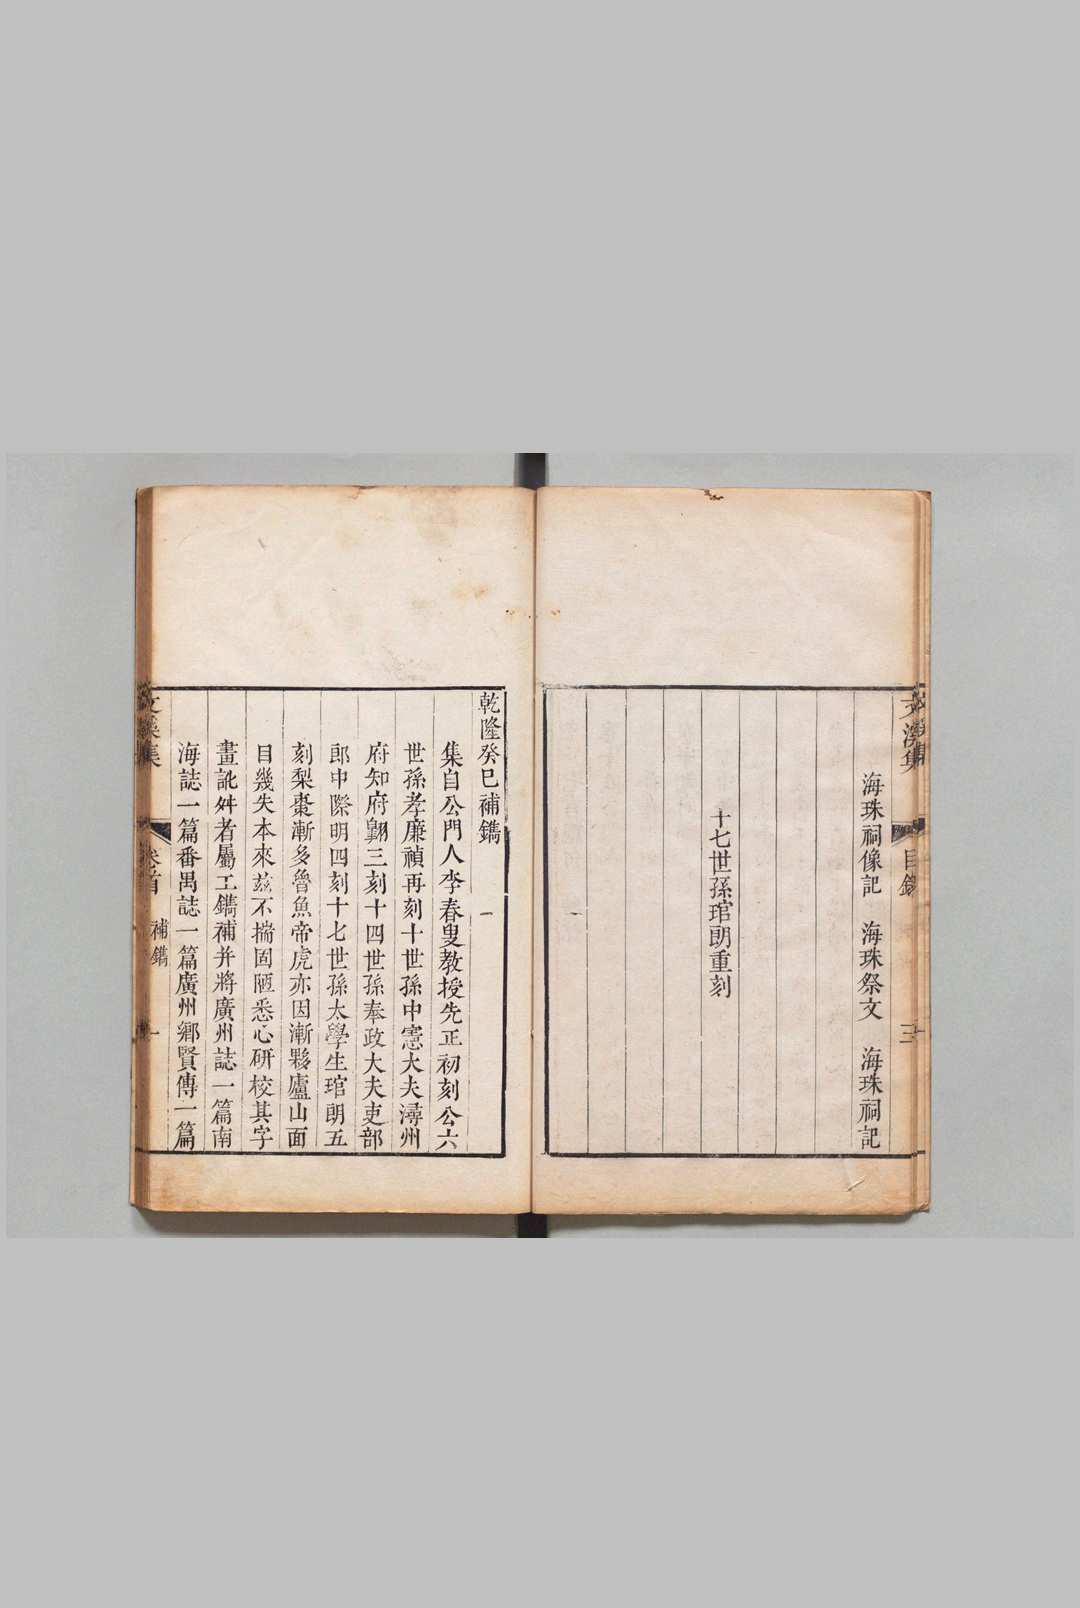 文溪集
目錄
三
海珠祠像記　海珠祭文　海珠祠記
十七世孫琯朗重刻
乾隆癸巳補鐫
集自公門人李春叟教授先正初刻公六
世孫孝廉禎再刻十世孫中憲大夫潯州
府知府翺三刻十四世孫奉政大夫吏部
郎中際明四刻十七世孫太學生琯朗五
刻梨棗漸多魯魚帝虎亦因漸夥廬山面
目幾失本來茲不揣固陋悉心研校其字
畫訛舛者屬工鐫補并將廣州誌一篇南
海誌一篇番禺誌一篇廣州鄉賢傳一篇
文溪集
卷首
補鐫
一